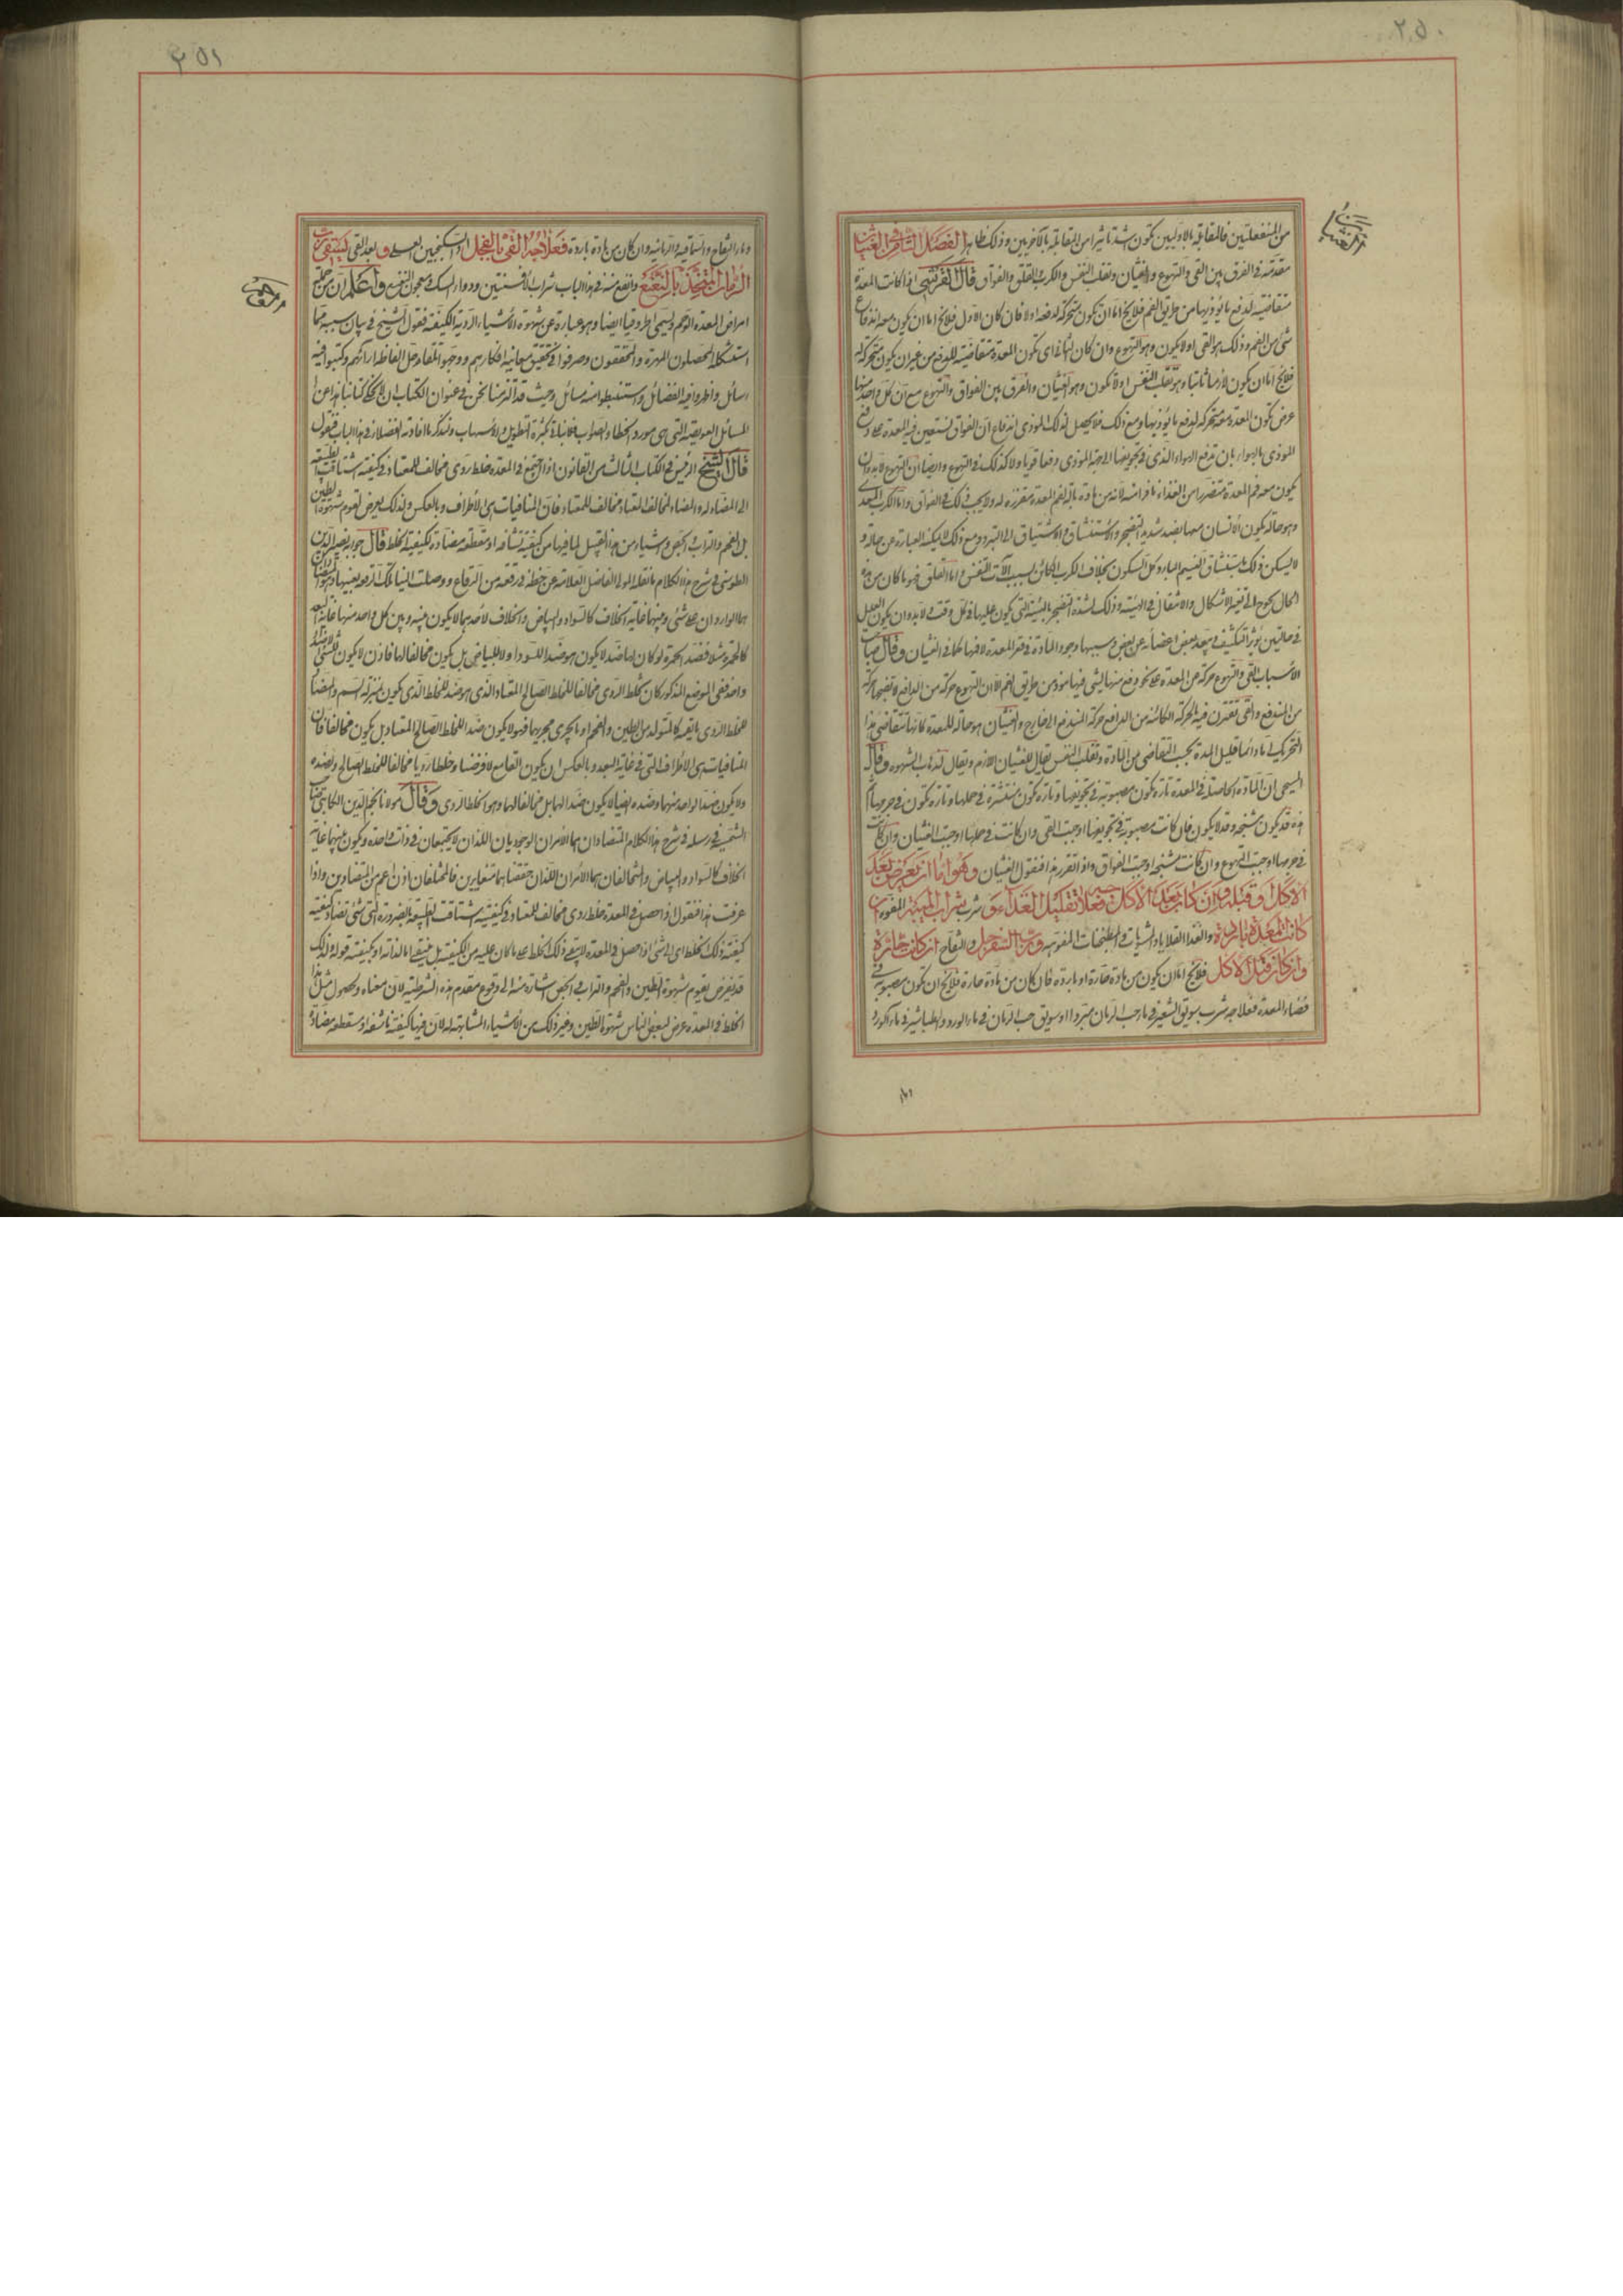 ٢٥٠
من المنفعلتين فالمقابلة بالاوليين تكون اشد تاثيرا من المقابلة بالاخريين وذلك ظاهر الفصل السادس في الغثيان
مقدمة في الفرق بين القي والتهوع والغثيان وتقلب النفس والكرب والقلق والفواق قال القرشي اذا كانت المعدة
متقاضية لدفع ما يوذيها من طريق الفم فلا يخ اما ان تكون متحركة لدفعه اولا فان كان الاول فلا يخ اما ان يكون معه اندفاع
شي من الفم وذلك هو القي او لا يكون وهو التهوع وان كان الثاني اي تكون المعدة متقاضية للدفع من غير ان يكون متحركة له
فلا يخ اما ان يكون لازما ثابتا وهو تقلب النفس او لا تكون وهو الغثيان والفرق بين الفواق والتهوع مع ان كل واحد منهما
عرض تكون المعدة معه متحركة لدفع ما يوذيها ومع ذلك فلا يحصل لذلك الموذي اندفاع ان الفواق تستعين فيه المعدة على دفع
الموذي بالهواء بان تدفع الهواء الذي في تجويفها الى جهة الموذي دفعا قويا ولا كذلك في التهوع وايضا ان التهوع لا بد وان
يكون معه فم المعدة متضررا من الغذاء نافرا منه لانه من مادة بالة لفم المعدة مقززة له ولا يجب ذلك في الفواق واما الكرب المعدي
وهو حالة يكون الانسان معها يضجر شديد التضجر والاستنشاق والاشتياق الى التبرد ومع ذلك
لا يسكن ذلك باستنشاق النسيم البارد كل السكون بخلاف الكرب الكائن بسبب آلات التنفس واما القلق فهو ما كان من هذه
الحال يحوج الى تغيير الاشكال والانتقال في الهيئة وذلك لشدة التضجر بالهيئة التي يكون عليها في كل وقت
في حالتين يوثر التكشف وتبعد بعض اعضائه عن بعض وسببها وجود المادة في قعر المعدة لا فمها كما في الغثيان وقال صاحب
الاسباب القي والتهوع حركة من المعدة على نحو دفع منها لشي فيها موذ من طريق الفم الا ان التهوع حركة من الدافع لا تصحبها حركة
من المندفع والقي تقترن فيه بالحركة الكائنة من الدافع حركة المندفع الى خارج والغثيان هو حالة للمعدة كانها تتقاضى بها
التحريك اما دائما قليل المدة بحسب التقاضي من المادة وتقلب النفس يقال للغثيان اللازم ويقال لذهاب الشهوة وقال
المسيحي ان المادة الحاصلة في المعدة تارة تكون مصبوبة في تجويفها وتارة تكون منتشرة في خملها وتارة تكون في جرمها
هذه قد يكون متشنجه وقد لا يكون فان كانت مصبوبة في تجويفها اوجبت القي وان كانت في خملها اوجبت الغثيان وان كانت
في جرمها اوجبت التهوع وان كانت متشنجه اوجبت الفواق واذا تقرر هذا فنقول الغثيان وهو اما ان يعرض بعد
الاكل او قبله وان كان بعد الاكل فعلاجه تقليل الغذاء و شرب شراب الميبه المقوه ان
كانت المعدة باردة والغذا القلايا والشويات المقوية ورب السفرجل والتفاح ان كانت حارة
وان كان قبل الاكل فلا يخ اما ان يكون من مادة حارة او باردة فان كان من مادة حارة فلا يخ ان تكون مصبوبة في
فضاء المعدة فعلاجه شرب سويق الشعير في ماء حب الرمان مبردا او سويق حب الرمان في ماء الورد والطباشير في ماء
٢٥١
وماء التفاح والسماقية والرمانية وان كان من مادة باردة فعلاجه القي بالفجل او السكنجبين العسلي و بعد القي ليستف رب
الرمان المتخذ بالنعنع وانفع منه في هذا الباب شراب الافسنتين ودواء المسك ومعجون النعنع واعلم ان من جملة
امراض المعدة الوحم ويسمى ايضا وهو عبارة عن شهوة الاشياء الردية الكيفية فنقول الشيخ في بيان سببه مما
استشكله المحصلون المهرة والمحققون وصرفوا في تحقيق معانيه افكارهم ووجهوا تلقاء حل الفاظه اراءهم وكتبوا فيه
رسائل واظهروا فيه الفضائل واستنبطوا منه مسائل وحيث قد التزمنا نحن في عنوان الكتاب ان لا نخلي كتابنا هذا عن
المسائل العويصة التي هي مورد الخطاء والصواب فلا نبالي بكثرة التطويل والاسهاب ونذكر ما افادته الفضلاء في هذا الباب فنقول
قال الشيخ الرئيس في الكتاب الثالث من القانون اذا اجتمع في المعدة خلط ردي مخالف للمعتاد في كيفيته اشتاقت الطبيعة
الى المضاد له والمضاد للمخالف للمعتاد مخالف للمعتاد فان المنافيات هي الاطراف وبالعكس ولذلك يعرض لقوم شهوة الطين
بل الفحم والتراب والجص واشياء من هذا القبيل لما فيها من كيفية ناشفة او مقطعة مضادة لكيفية الخلط قال خواجه نصير الدين
الطوسي في شرح هذا الكلام ما نقله المولى الفاضل العلامة عن خطه في رقعة من الرقاع ووصلت الينا تلك الرقعة بعينها وهو المتضادان
هما الواردان على شي وبينهما غاية الخلاف كالسواد والبياض والخلاف لاحدهما لا يكون بينه وبين كل واحد منها غاية البعد
كالحمرة مثلا فضد الحمرة لو كان لها ضد لا يكون هو ضد السواد ولا للبياض بل يكون مخالفا لها فاذن لا يكون للشي الا ضد
واحد ففي الموضع المذكور كان الخلط الردي مخالفا للخلط الصالح المعتاد والذي هو ضد للخلط الذي يكون بمنزلة السم والمضاد
للخلط الردي بالقيء كالمتولد من الطين والفحم او ما يجري مجريها فهو لا يكون ضد الخلط الصالح المعتاد بل يكون مخالفا فان
المنافيات هي الاطراف التي في غاية البعد وبالعكس ان يكون القامع لافرضنا وخلطا رديا مخالفا للخلط الصالح ولضده
ولا يكون ضد الواحد منهما وضده ايضا لا يكون ضد الهما بل مخالفا لهما وهو الخلط الردي وقال مولانا نجم الدين الكاتبي صاحب
الشمسية في رسالة في شرح هذا الكلام المتضادان هما الامران الوجوديان اللذان لا يجتمعان في ذات واحدة ويكون بينهما غاية
الخلاف كالسواد والبياض والمتخالفان هما الامران اللذان حقيقتاهما متغايرين فالمختلفان اذن اعم من المتضادين واذا
عرفت هذا فنقول اذا حصل في المعدة خلط ردي مخالف للمعتاد في كيفيته اشتاقت الطبيعة بالضرورة الى شي تضاد كيفيته
كيفية ذلك الخلط اي الى شي اذا حصل في المعدة لا يبقى ذلك الخلط على ما كان عليه من الكيفية بل اما لذاته او بكيفيته قوله ولذلك
قد يعرض لقوم شهوة الطين والفحم والتراب والجص اشارة منه الى وقوع مقدم هذه الشرطية لان معناه وبحصول مثل هذا
الخلط في المعدة عرض لبعض الناس شهوة الطين وغير ذلك من الاشياء المشابهة له لان فيها كيفية ناشفة او مقطعة مضادة